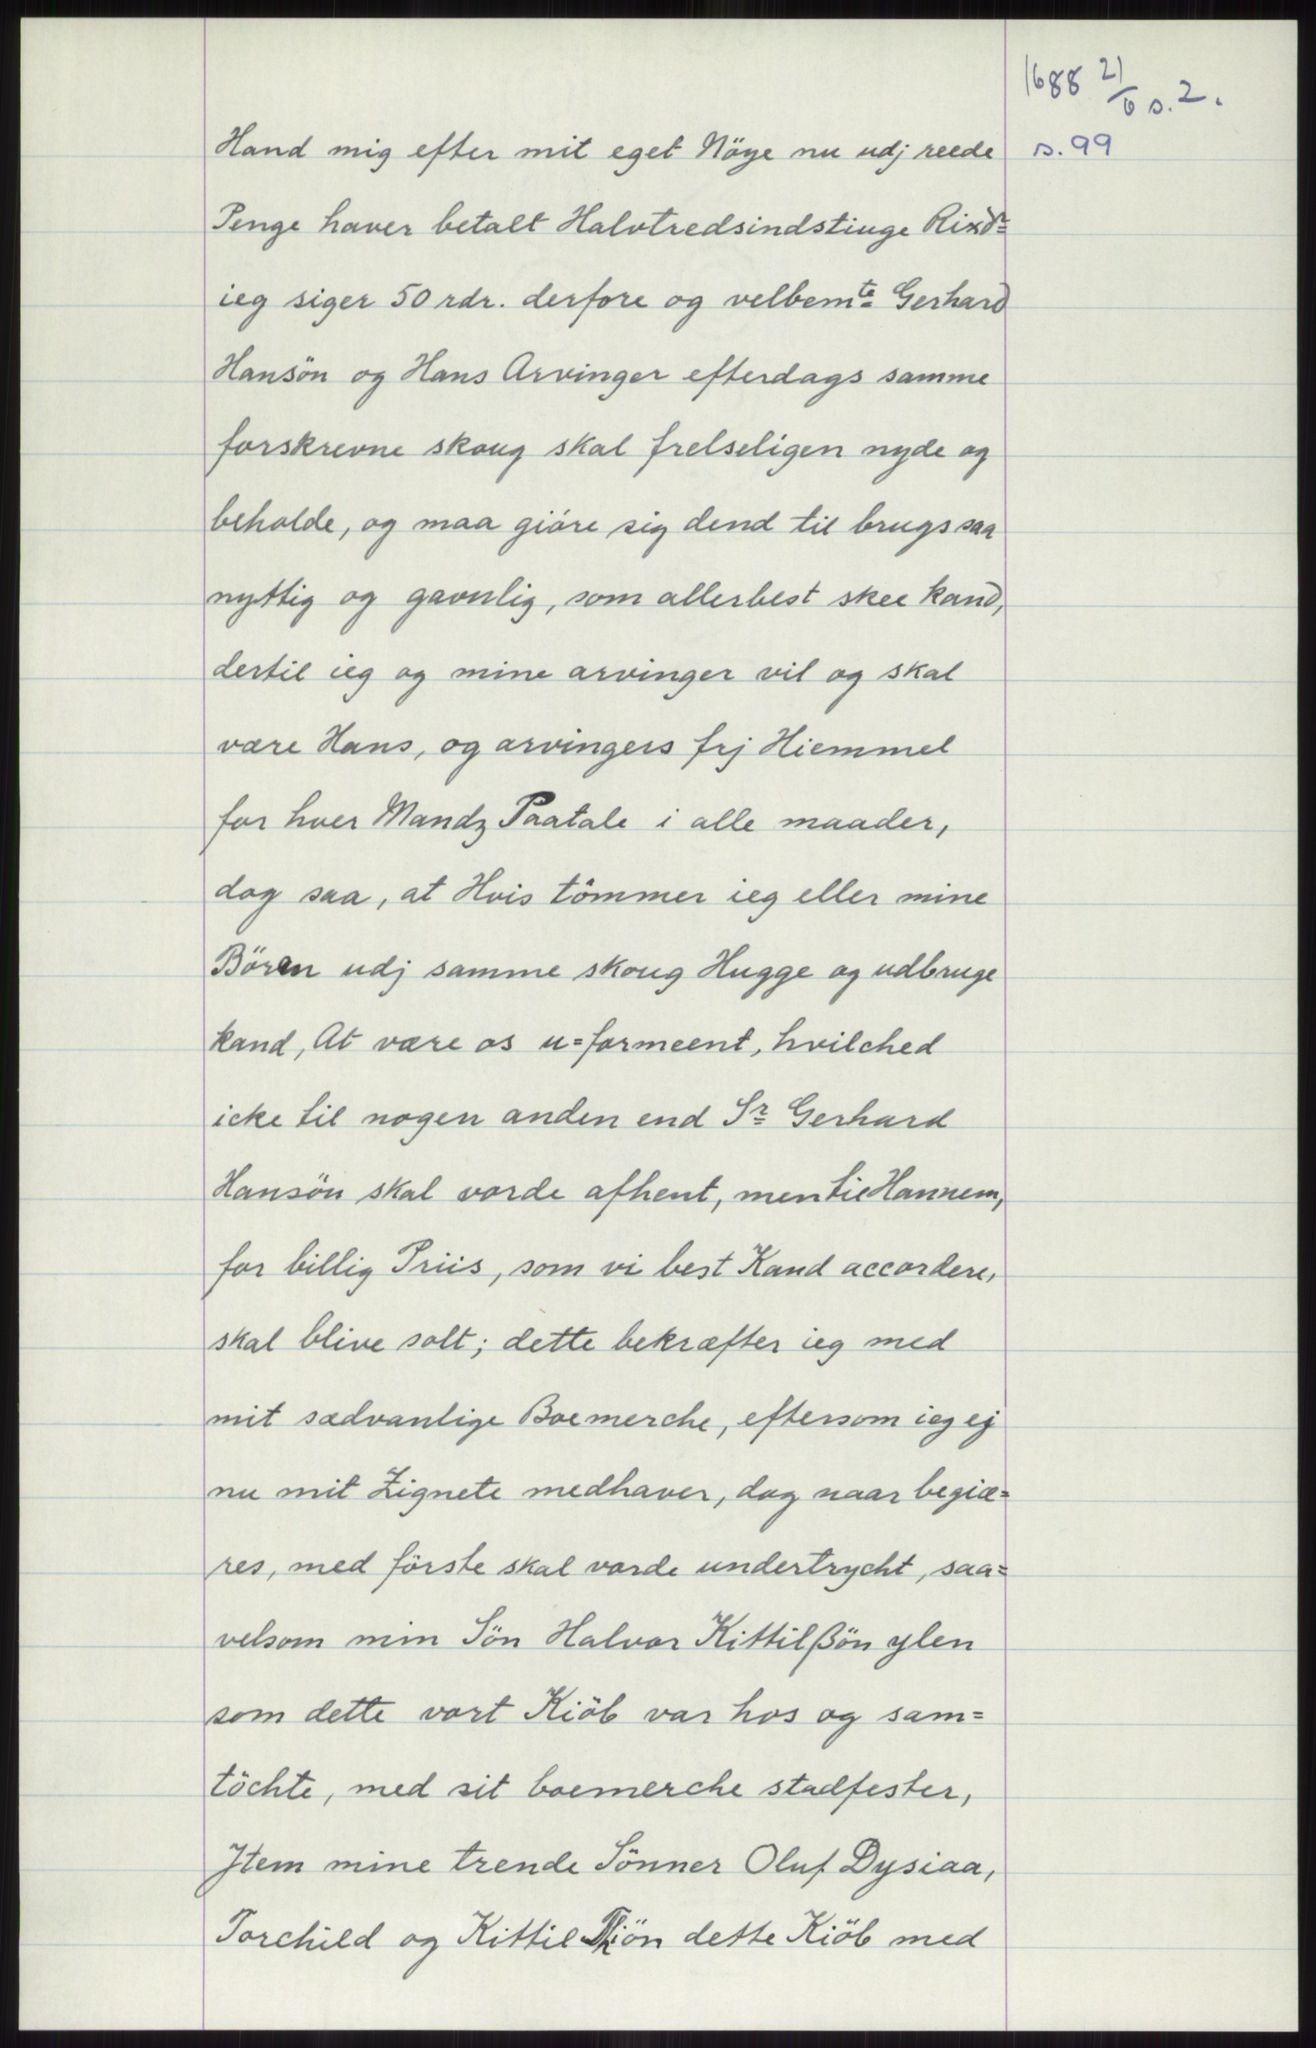 1688 21/6 s. 2.
s. 99
Hand mig efter mit eget Nöye nu udj reede
Penge haver betalt Halvtredsindstiuge Rixdr
ieg siger 50 rdr. derfore og velbemte Gerhard
Hansön og Hans Arvinger efterdags samme
forskrevne skoug skal frelseligen nyde og
beholde, og maa giöre sig dend til brugs saa
nyttig og gavnlig, som allerbest skee kand,
dertil ieg og mine arvinger vil og skal
være Hans, og arvingers frj Hiemmel
for hver Mandz Paatale i alle maader,
dog saa, at Hvis tömmer ieg eller mine
Böran udj samme skoug Hugge og udbruge
kand, At være os u=formeent, hvilched
icke til nogen anden end Sr Gerhard
Hansön skal vorde afhent, men til Hannem,
for billig Priis, som vi best Kand accordere,
skal blive solt; dette bekræfter ieg med
mit sædvanlige Boemerche, eftersom ieg ej
nu mit Zignete medhaver, dog naar begiæ=
res, med förste skal vorde undertrycht, saa=
velsom min Sön Halvor Kittilßön ylen
som dette vort Kiöb var hos og sam=
töchte, med sit boemerche stadfester,
Jtem mine trende Sönner Oluf Dysiaa,
Torchild og Kittil dette Kiöb med